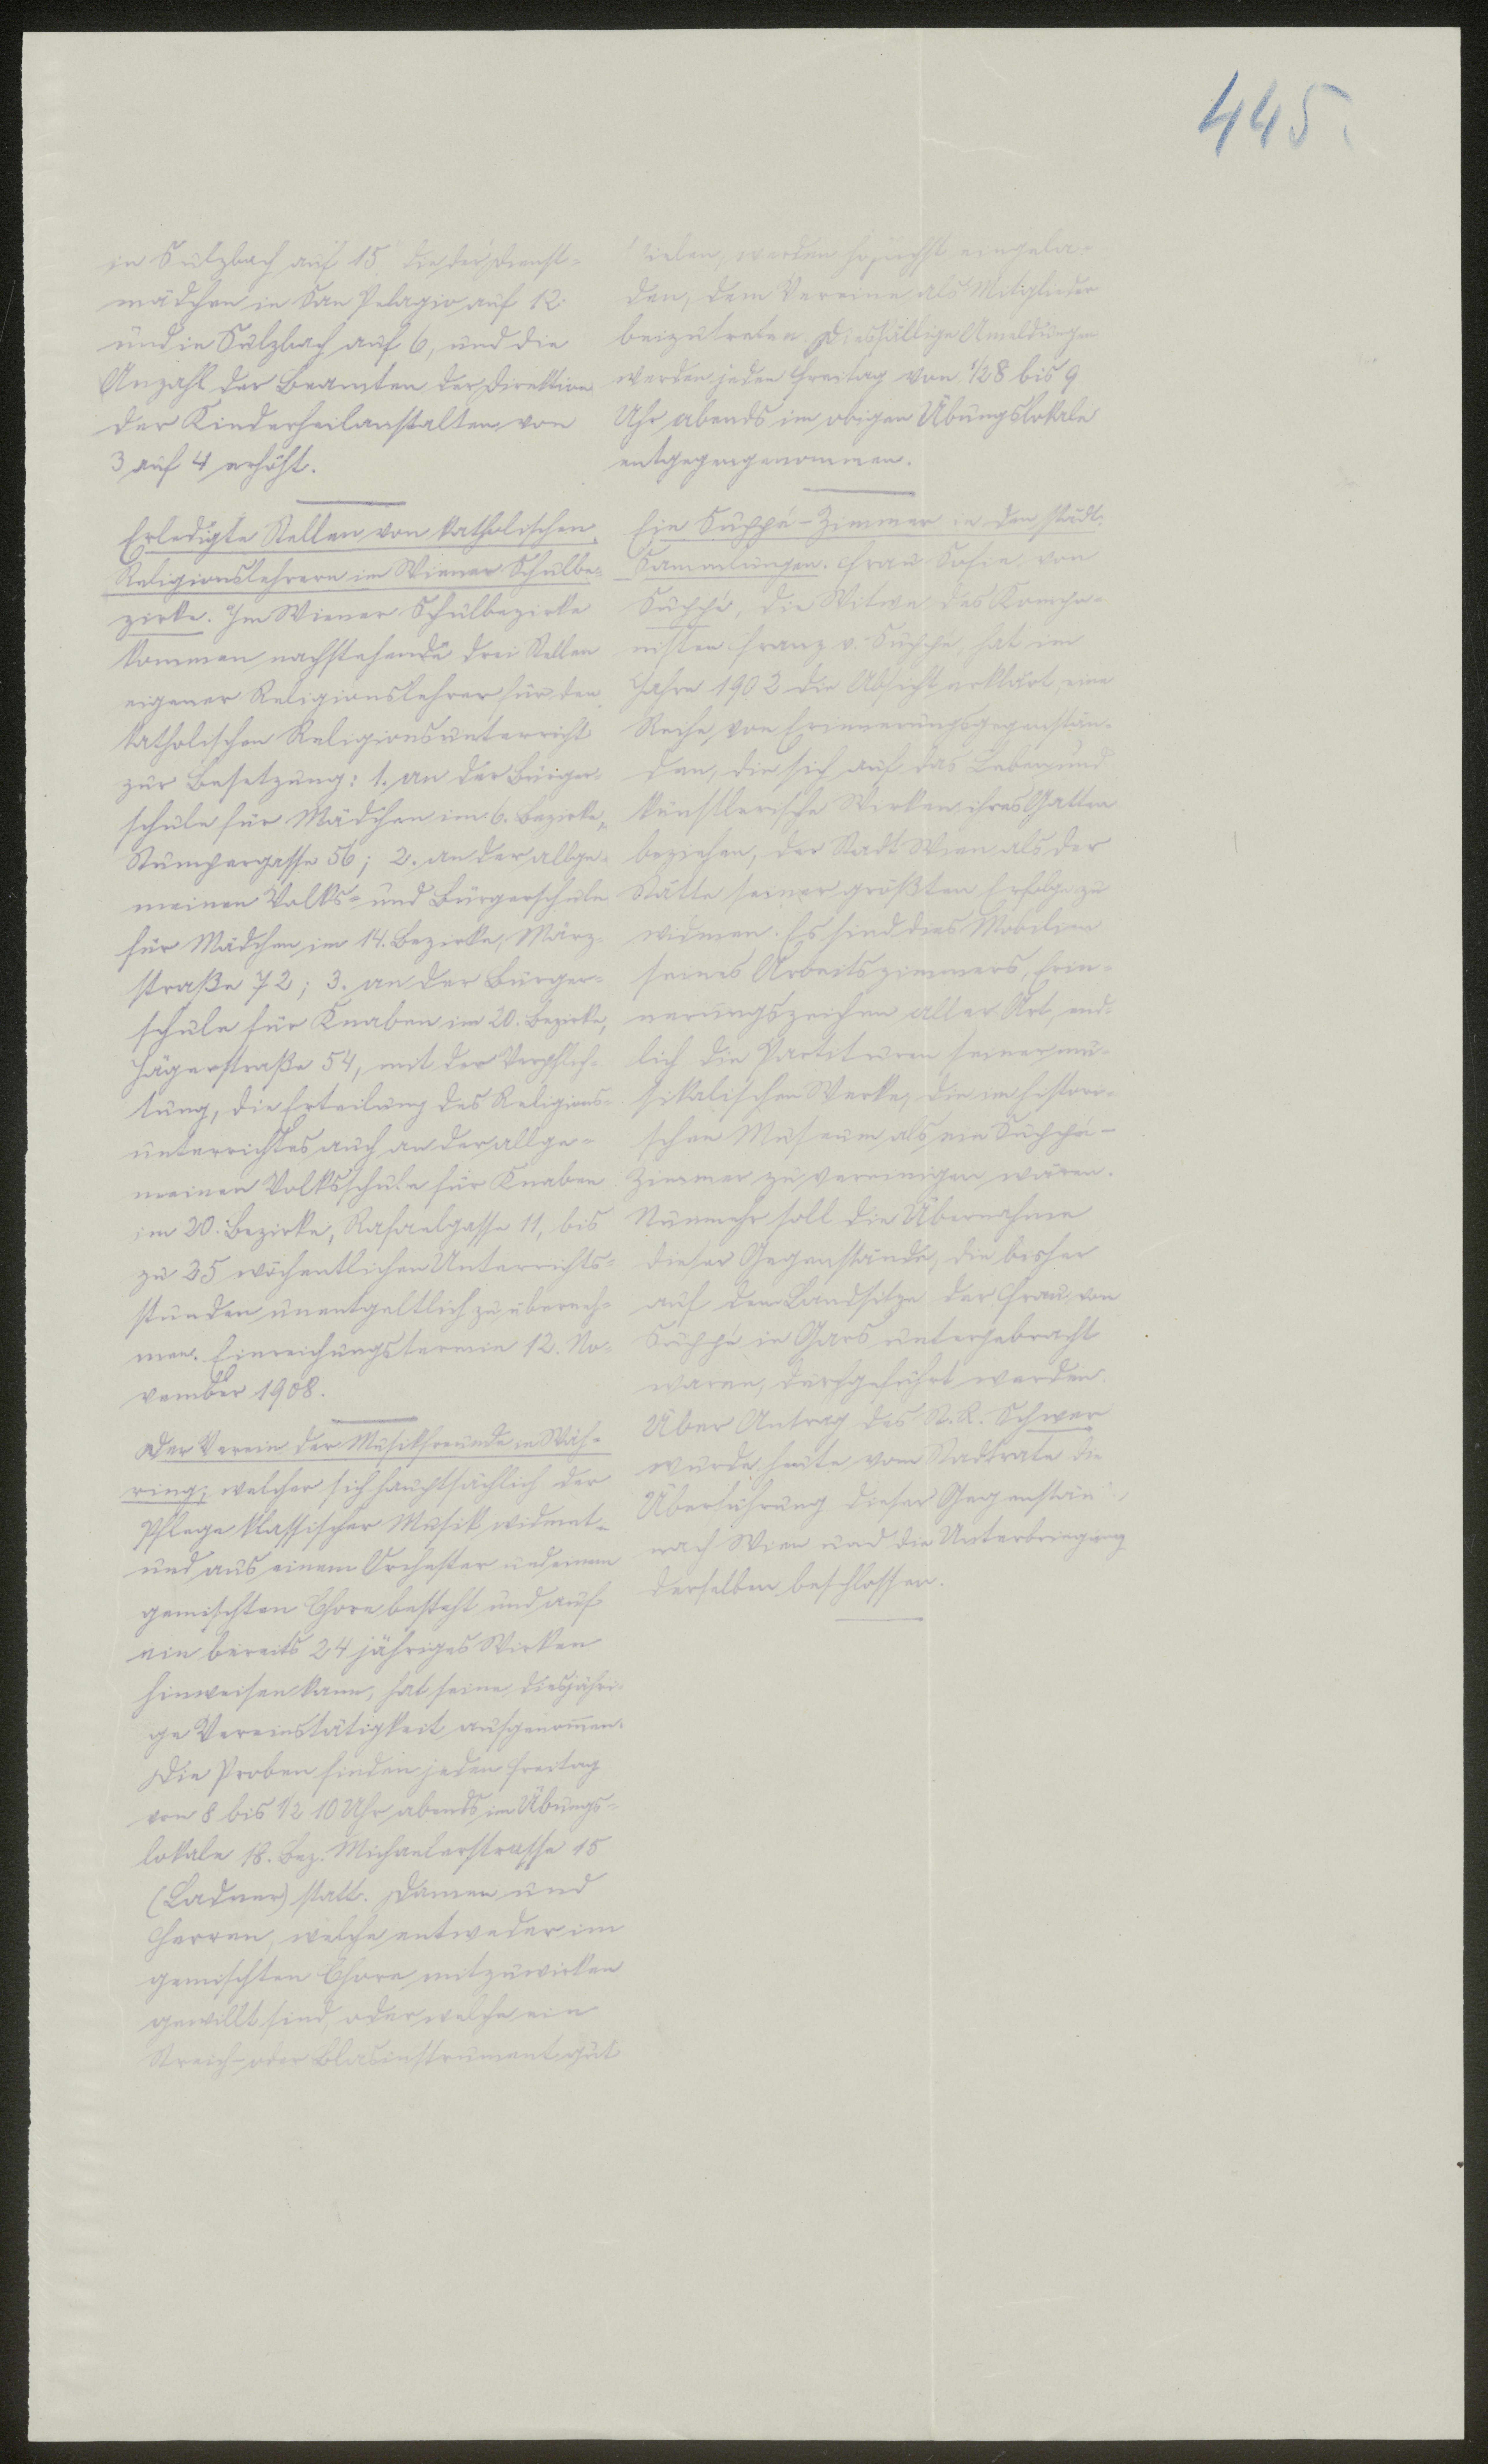 445.
in Sulzbach auf 15, die der Dienst-
mädchen in San Pelagio auf 12
und in Sulzbach auf 6, und die
Anzahl der Beamten der Direktion
der Kinderheilanstalten von
3 auf 4 erhöht.
Erledigte Stellen von katholischen
Religionslehrern im Wiener Schulbe-
zirke. Im Wiener Schulbezirke
kommen nachstehende drei Stellen
eigener Religionslehrer für den
katholischen Religionsunterricht
zur Besetzung: 1. an der Bürger-
schule für Mädchen im 6. Bezirke,
Stumpergasse 56; 2. an der allge-
meinen Volks- und Bürgerschule
für Mädchen im 14. Bezirke, März-
straße 72; 3. an der Bürger-
schule für Knaben im 20. Bezirke,
Jägerstraße 54, mit der Verpflich-
tung, die Erteilung des Religions-
unterrichtes auch an der allge-
meinen Volksschule für Knaben
im 20. Bezirke, Rafaelgasse 11, bis
zu 35 wöchentlichen Unterrichts-
stunden unentgeltlich zu überneh-
men. Einreichungstermin 12. No-
vember 1908.
Der Verein der Musikfreunde in Wäh-
ring, welcher sich hauptsächlich der
Pflege klassischer Musik widmet
und aus einem Orchester und einem
gemischten Chore besteht und auf
ein bereits 24 jähriges Wirken
hinweisen kann, hat seine diesjähri-
ge Vereinstätigkeit aufgenommen.
Die Proben finden jeden Freitag
von 8 bis 1/2 10 Uhr abends im Übungs-
lokale 18. Bez. Michaelerstrasse 15
(Ladner) statt. Damen und
Herren, welche entweder im
gemischten Chore mitzuwirken
gewillt sind, oder welche ein
Streich- oder Blasinstrument gut
spielen, werden höflichst eingela-
den, dem Vereine als Mitglieder
beizutreten. Diesfällige Anmeldungen
werden jeden Freitag von 1/2 8 bis 9
Uhr abends im obigen Übungslokale
entgegengenommen.
Ein Suppé-Zimmer in den städt.
Sammlungen. Frau Sofie von
Suppé, die Witwe des Kompo-
nisten Franz v. Suppé, hat im
Jahre 1902 die Absicht erklärt, eine
Reihe von Erinnerungsgegenstän-
den, die sich auf das Leben und
künstlerische Wirken ihres Gatten
beziehen, der Stadt Wien als der
Stätte seiner größten Erfolge zu
widmen. Es sind dies Mobilien
seines Arbeitszimmers, Erin-
nerungszeichen aller Art, end-
lich die Partituren seiner mu-
sikalischen Werke, die im histori-
schen Museum als ein Suppé-
Zimmer zu vereinigen wären.
Nunmehr soll die Übernahme
dieser Gegenstände, die bisher
auf dem Landsitze der Frau von
Suppé in Gars untergebracht
waren, durchgeführt werden.
Über Antrag des St. R. Schwer
wurde heute vom Stadtrate die
Überführung dieser Gegenstän
nach Wien und die Unterbringung
derselben beschlossen.